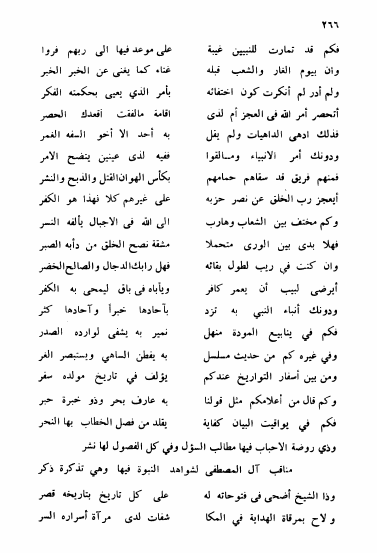 ٢٦٦
فكم قد تمارت للنبيين غيبة على موعد فيها الى ربهم فروا
وان بيوم الغار والشعب قبله غناء كما يغنى عن الخبر الخبر
ولم أدر لم أنكرت كون اختفائه بأمر الذي يعيى بحكمته الفكر
أتحصر أمر الله فى العجز أم لدى اقامة مالفقت أقعدك الحصر
فذلك ادهى الداهيات ولم يقل به أحد الا أخو السفه الغمر
ودونك أمر الانبياء ومالقوا ففيه لذى عينين يتضح الامر
فمنهم فريق قد سقاهم حمامهم بكأس الهوان القتل والذبح والنشر
أيعجز رب الخلق عن نصر حزبه على غيرهم كلا فهذا هو الكفر
وكم مختف بين الشعاب وهارب الى الله فى الاجبال يألفه النسر
فهلا بدى بين الورى متحملا مشقة نصح الخلق من دأبه الصبر
وان كنت في ريب لطول بقائه فهل رابك الدجال والصالح الخضر
أيرضى لبيب أن يعمر كافر ويأباه فى باق ليمحى به الكفر
ودونك أنباء النبي به تزد بآحادها خبرأ وآحادها كثر
فكم في ينابيع المودة منهل نمير به يشفى لوارده الصدر
وفي غيره كم من حديث مسلسل به يفطن الساهي ويستبصر الغر
ومن بين أسفار التواريخ عندكم يؤلف في تاريخ مولده سفر
وكم قال من أعلامكم مثل قولنا به عارف بحر وذو خبرة حبر
فكم في يواقيت البيان كفاية يقلد من فصل الخطاب بها النحر
وذي روضة الاحباب فيها مطالب السؤل وفي كل الفصول لها نشر
مناقب آل المصطفى لشواهد النبوة فيها وهي تذكرة ذكر
وذا الشيخ أضحى فى فتوحاته له على كل تاريخ بتاريخه قصر
ولاح بمرقاة الهداية في المكا شفات لدى مرآة أسراره السر